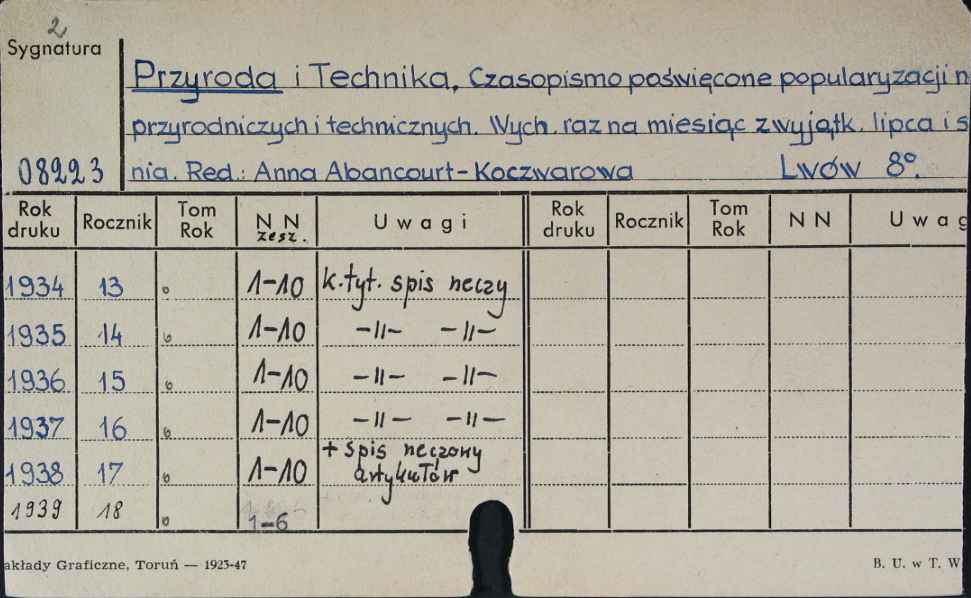 2
Sygnatura
Przyroda i Technika, Czasopismo poświęcone popularyzacji n
przyrodniczych i technicznych. Wych. raz na miesiąc z wyjątk. lipca i s
08223 nia. Red.: Anna Abancourt-Koczwarowa Lwów 8°.
Rok druku Rocznik Tom Rok NN zesz. Uwagi Rok druku Rocznik Tom Rok NN Uwag
1934 13 1-10 k.tyt. spis rzeczy
1935 14 1-10 -11- -11-
1936 15 1-10 -11- -11-
1937 16 1-10 -11- -11-
1938 17 1-10 + spis rzeczowy artykułów
1939 18 1-6
akłady Graficzne, Toruń — 1923-47 B. U. w T. W